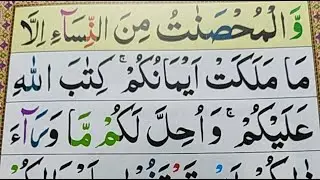 وَّالْمُحْصَنٰتُ مِنَ النِّسَآءِ اِلَّا
مَا مَلَكَتْ اَيْمَانُكُمْ ۚ كِتٰبَ اللّٰهِ
عَلَيْكُمْ ۚ وَاُحِلَّ لَكُمْ مَّا وَرَآءَ